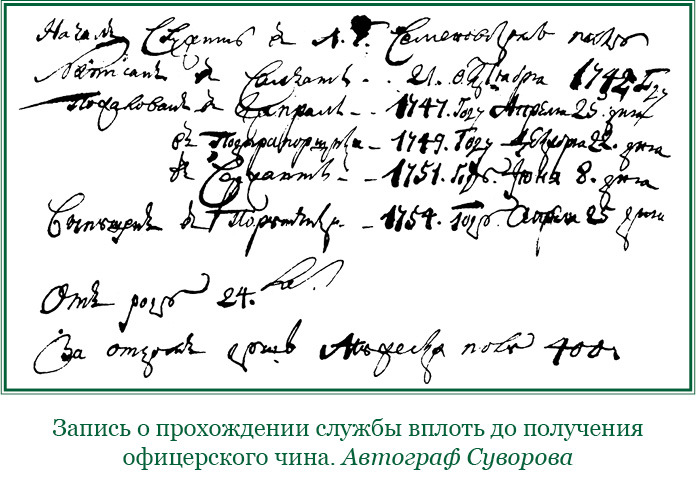 Началъ Служить в Л. Г. Семеновскомъ полку
в Салдаты .. 21. октября 1742 Году
Пожалованъ в Капралы .. 1747. Году Апреля 25. дня
в Подпрапорщики .. 1749. Году 22. дня
в Сержанты .. 1751. Году. Июня 8. дня
в Поручики .. 1754. Году. Апреля 25 дня
От роду 24.
За отцомъ душъ 400
Запись о прохождении службы вплоть до получения
офицерского чина. Автограф Суворова